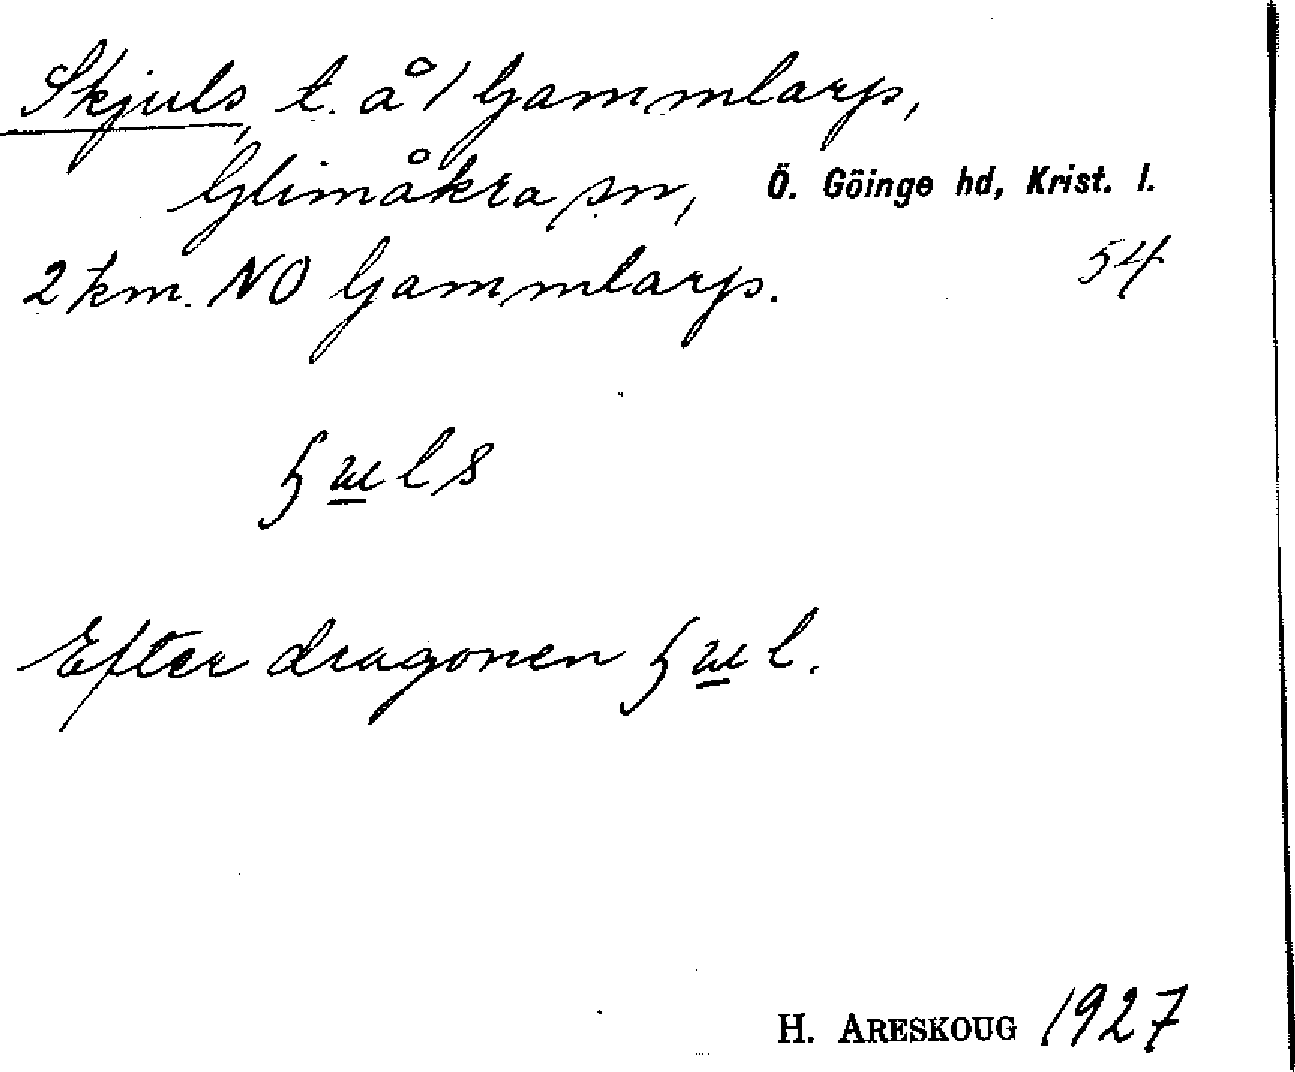 Skjuls, t. å 1 Gammlarp,
Glimåkra sn, Ö. Göinge hd, Krist. l.
2 km. NO Gammlarp. 54
Efter dragonen
H. ARESKOUG 1927